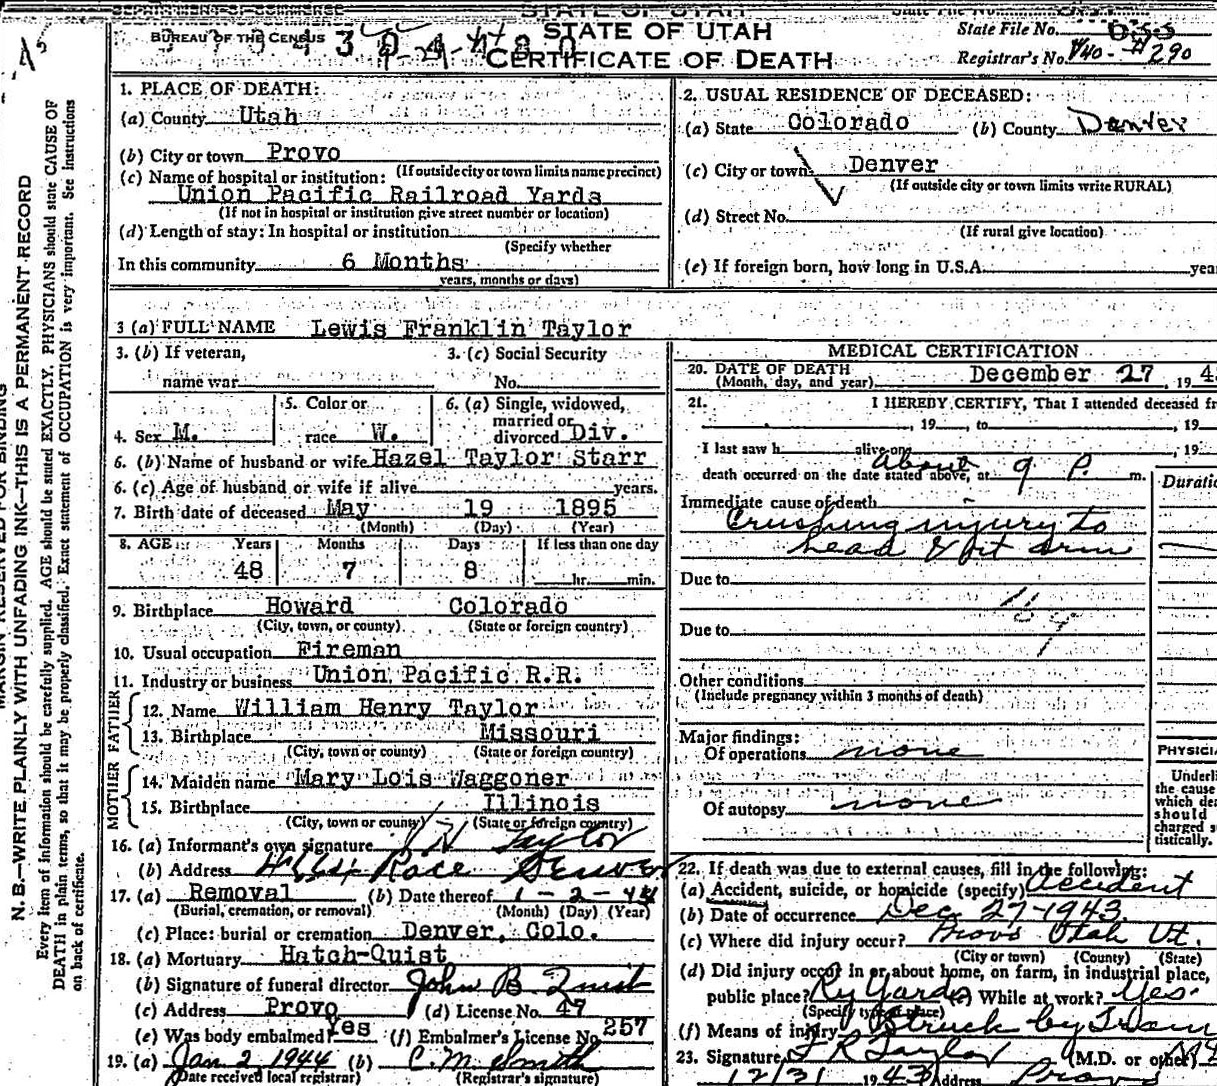 DEPARTMENT OF COMMERCE STATE OF UTAH State File No.
BUREAU OF THE CENSUS STATE OF UTAH State File No.
CERTIFICATE OF DEATH Registrar's No. 290
1. PLACE OF DEATH:
(a) County Utah
(b) City or town Provo
(If outside city or town limits name precinct)
(c) Name of hospital or institution:
Union Pacific Railroad Yards
(If not in hospital or institution give street number or location)
(d) Length of stay: In hospital or institution
(Specify whether
In this community 6 Months
years, months or days)
2. USUAL RESIDENCE OF DECEASED:
(a) State Colorado (b) County Denver
(c) City or town Denver
(If outside city or town limits write RURAL)
(d) Street No.
(If rural give location)
(e) If foreign born, how long in U.S.A. yea
3 (a) FULL NAME Lewis Franklin Taylor
3. (b) If veteran, 3. (c) Social Security
name war No.
4. Sex M. 5. Color or race W. 6. (a) Single, widowed, married or divorced Div.
6. (b) Name of husband or wife Hazel Taylor Starr
6. (c) Age of husband or wife if alive years.
7. Birth date of deceased May 19 1895
(Month) (Day) (Year)
8. AGE Years Months Days If less than one day
48 7 8 hr. min.
9. Birthplace Howard Colorado
(City, town, or county) (State or foreign country)
10. Usual occupation Fireman
11. Industry or business Union Pacific R.R.
FATHER
12. Name William Henry Taylor
13. Birthplace Missouri
(City, town or county) (State or foreign country)
MOTHER
14. Maiden name Mary Lois Waggoner
15. Birthplace Illinois
(City, town or county) (State or foreign country)
16. (a) Informant's own signature Taylor
(b) Address Race Denver
17. (a) Removal (b) Date thereof 1-2-44
(Burial, cremation, or removal) (Month) (Day) (Year)
(c) Place: burial or cremation Denver, Colo.
18. (a) Mortuary Hatch-Quist
(b) Signature of funeral director John B. Quist
(c) Address Provo (d) License No. 47
(e) Was body embalmed? Yes (f) Embalmer's License No. 257
19. (a) Jan 2, 1944 (b) C. M. Smith
(Date received local registrar) (Registrar's signature)
MEDICAL CERTIFICATION
20. DATE OF DEATH
(Month, day, and year) December 27, 194
21. I HEREBY CERTIFY, That I attended deceased fr
, 19 , to , 19
I last saw h alive on , 19
death occurred on the date stated above, at about 9 P. m.
Duratio
Immediate cause of death
Crushing injury to
head & rt arm
Due to
Due to
Other conditions
(Include pregnancy within 3 months of death)
Major findings:
Of operations none
Of autopsy none
PHYSICIA
Underli
the cause
which dea
should
charged s
tistically.
22. If death was due to external causes, fill in the following:
(a) Accident, suicide, or homicide (specify) Accident
(b) Date of occurrence Dec 27-1943.
(c) Where did injury occur? Provo Utah Ut.
(City or town) (County) (State)
(d) Did injury occur in or about home, on farm, in industrial place,
public place? Ry Yards (e) While at work? Yes.
(Specify type of place)
(f) Means of injury Struck by Train
23. Signature Taylor (M.D. or other)
12/31 1943 Address Provo
MARGIN RESERVED FOR BINDING
N. B.—WRITE PLAINLY WITH UNFADING INK—THIS IS A PERMANENT RECORD
Every item of information should be carefully supplied. AGE should be stated EXACTLY. PHYSICIANS should state CAUSE OF
DEATH in plain terms, so that it may be properly classified. Exact statement of OCCUPATION is very important. See Instructions
on back of certificate.